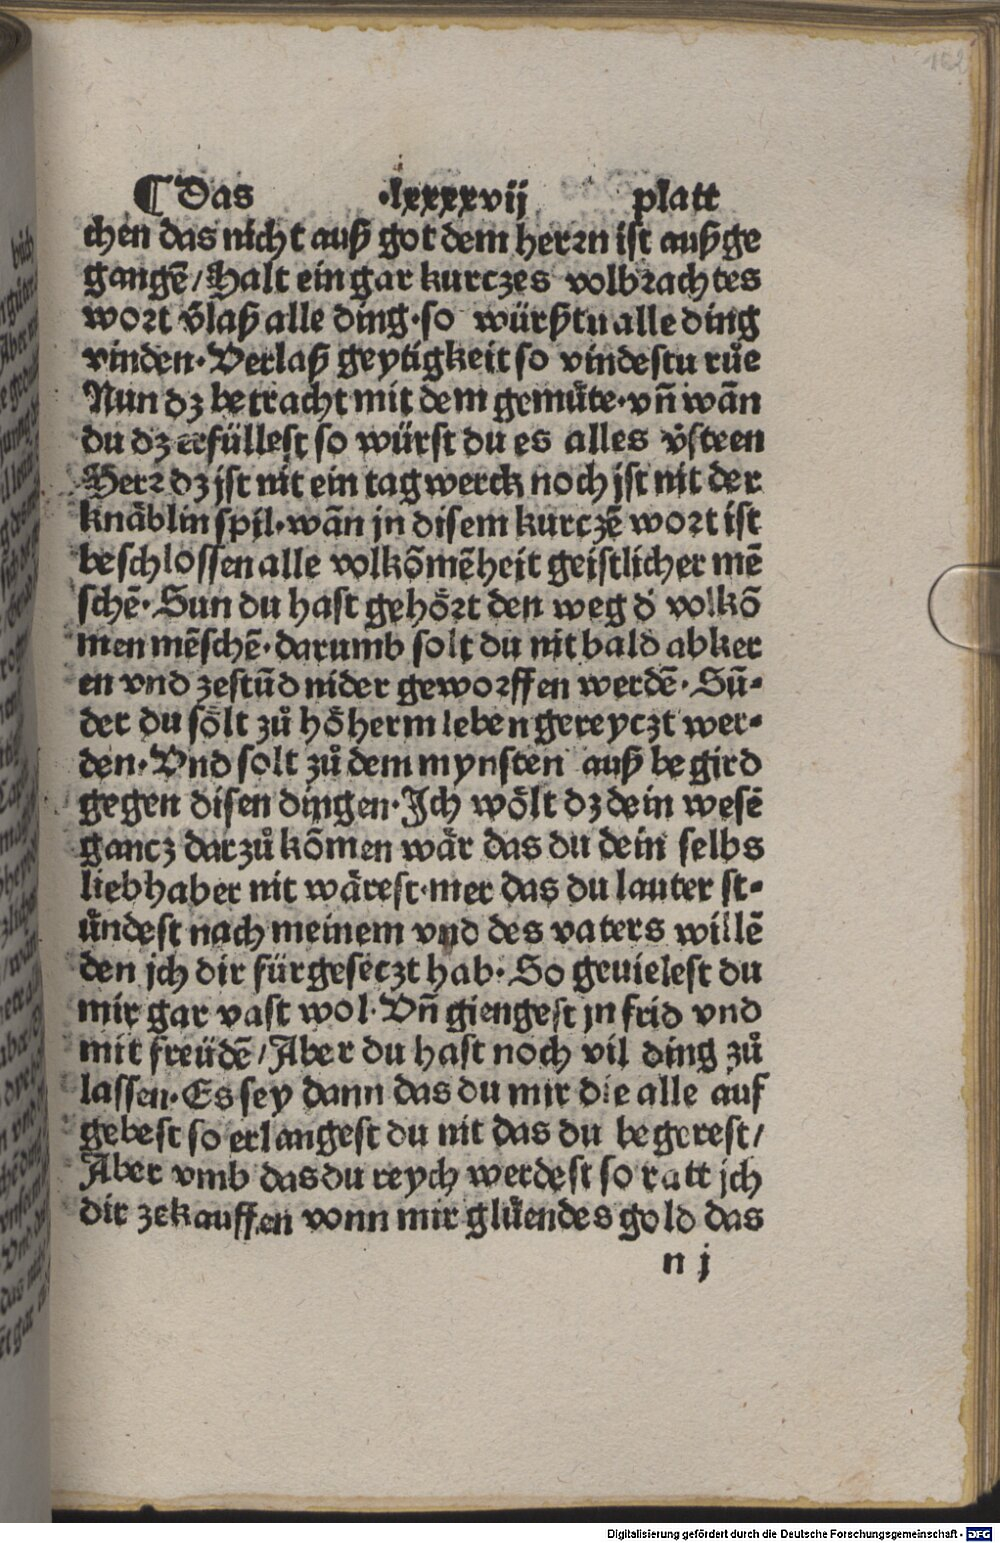 162
¶ Das .lxxxxvij platt
chen das nicht auß got dem herꝛn ist außge
gangē / Halt ein gar kurczes volbꝛachtes
woꝛt v̄laß alle ding · so würßtu alle ding
vinden · Verlaß geytigkeit so vindestu růe
Nun dz betracht mit dem gemüte · vn̄ wān
du dz erfüllest so würst du es alles v̄steen
Herꝛ dz jst nit ein tag werck noch jst nit der
knäblin spil · wān jn disem kurczē woꝛt ist
beschlossen alle volkōmēheit geistlicher mē
schē · Sun du hast gehöꝛt den weg d̄ volkō
men mēschē · darumb solt du nit bald abker
en vnd zestūd nider gewoꝛffen werdē · Sū-
der du sölt zů höherm leben gereyczt wer-
den · Vnd solt zů dem mynsten auß begird
gegen disen dingen · Jch wölt dz dein wesē
gancz darzů kōmen wär das du dein selbs
liebhaber nit wärest · mer das du lauter st-
ündest nach meinem vnd des vaters willē
den jch dir fürgeseczt hab · So geuielest du
mir gar vast wol · Vn̄ giengest jn frid vnd
mit freüdē / Aber du hast noch vil ding zů
lassen · Es sey dann das du mir die alle auf
gebest so erlangest du nit das du begerest /
Aber vmb das du reych werdest so ratt jch
dir zekauffen vonn mir glüendes gold das
n j
Digitalisierung gefördert durch die Deutsche Forschungsgemeinschaft - DFG